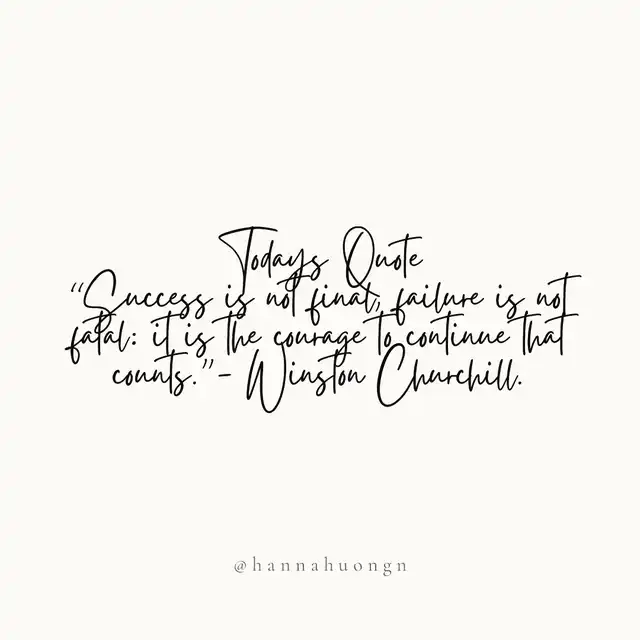 Todays Quote
“Success is not final; failure is not
fatal: it is the courage to continue that
counts.”- Winston Churchill.
@hannahuongn